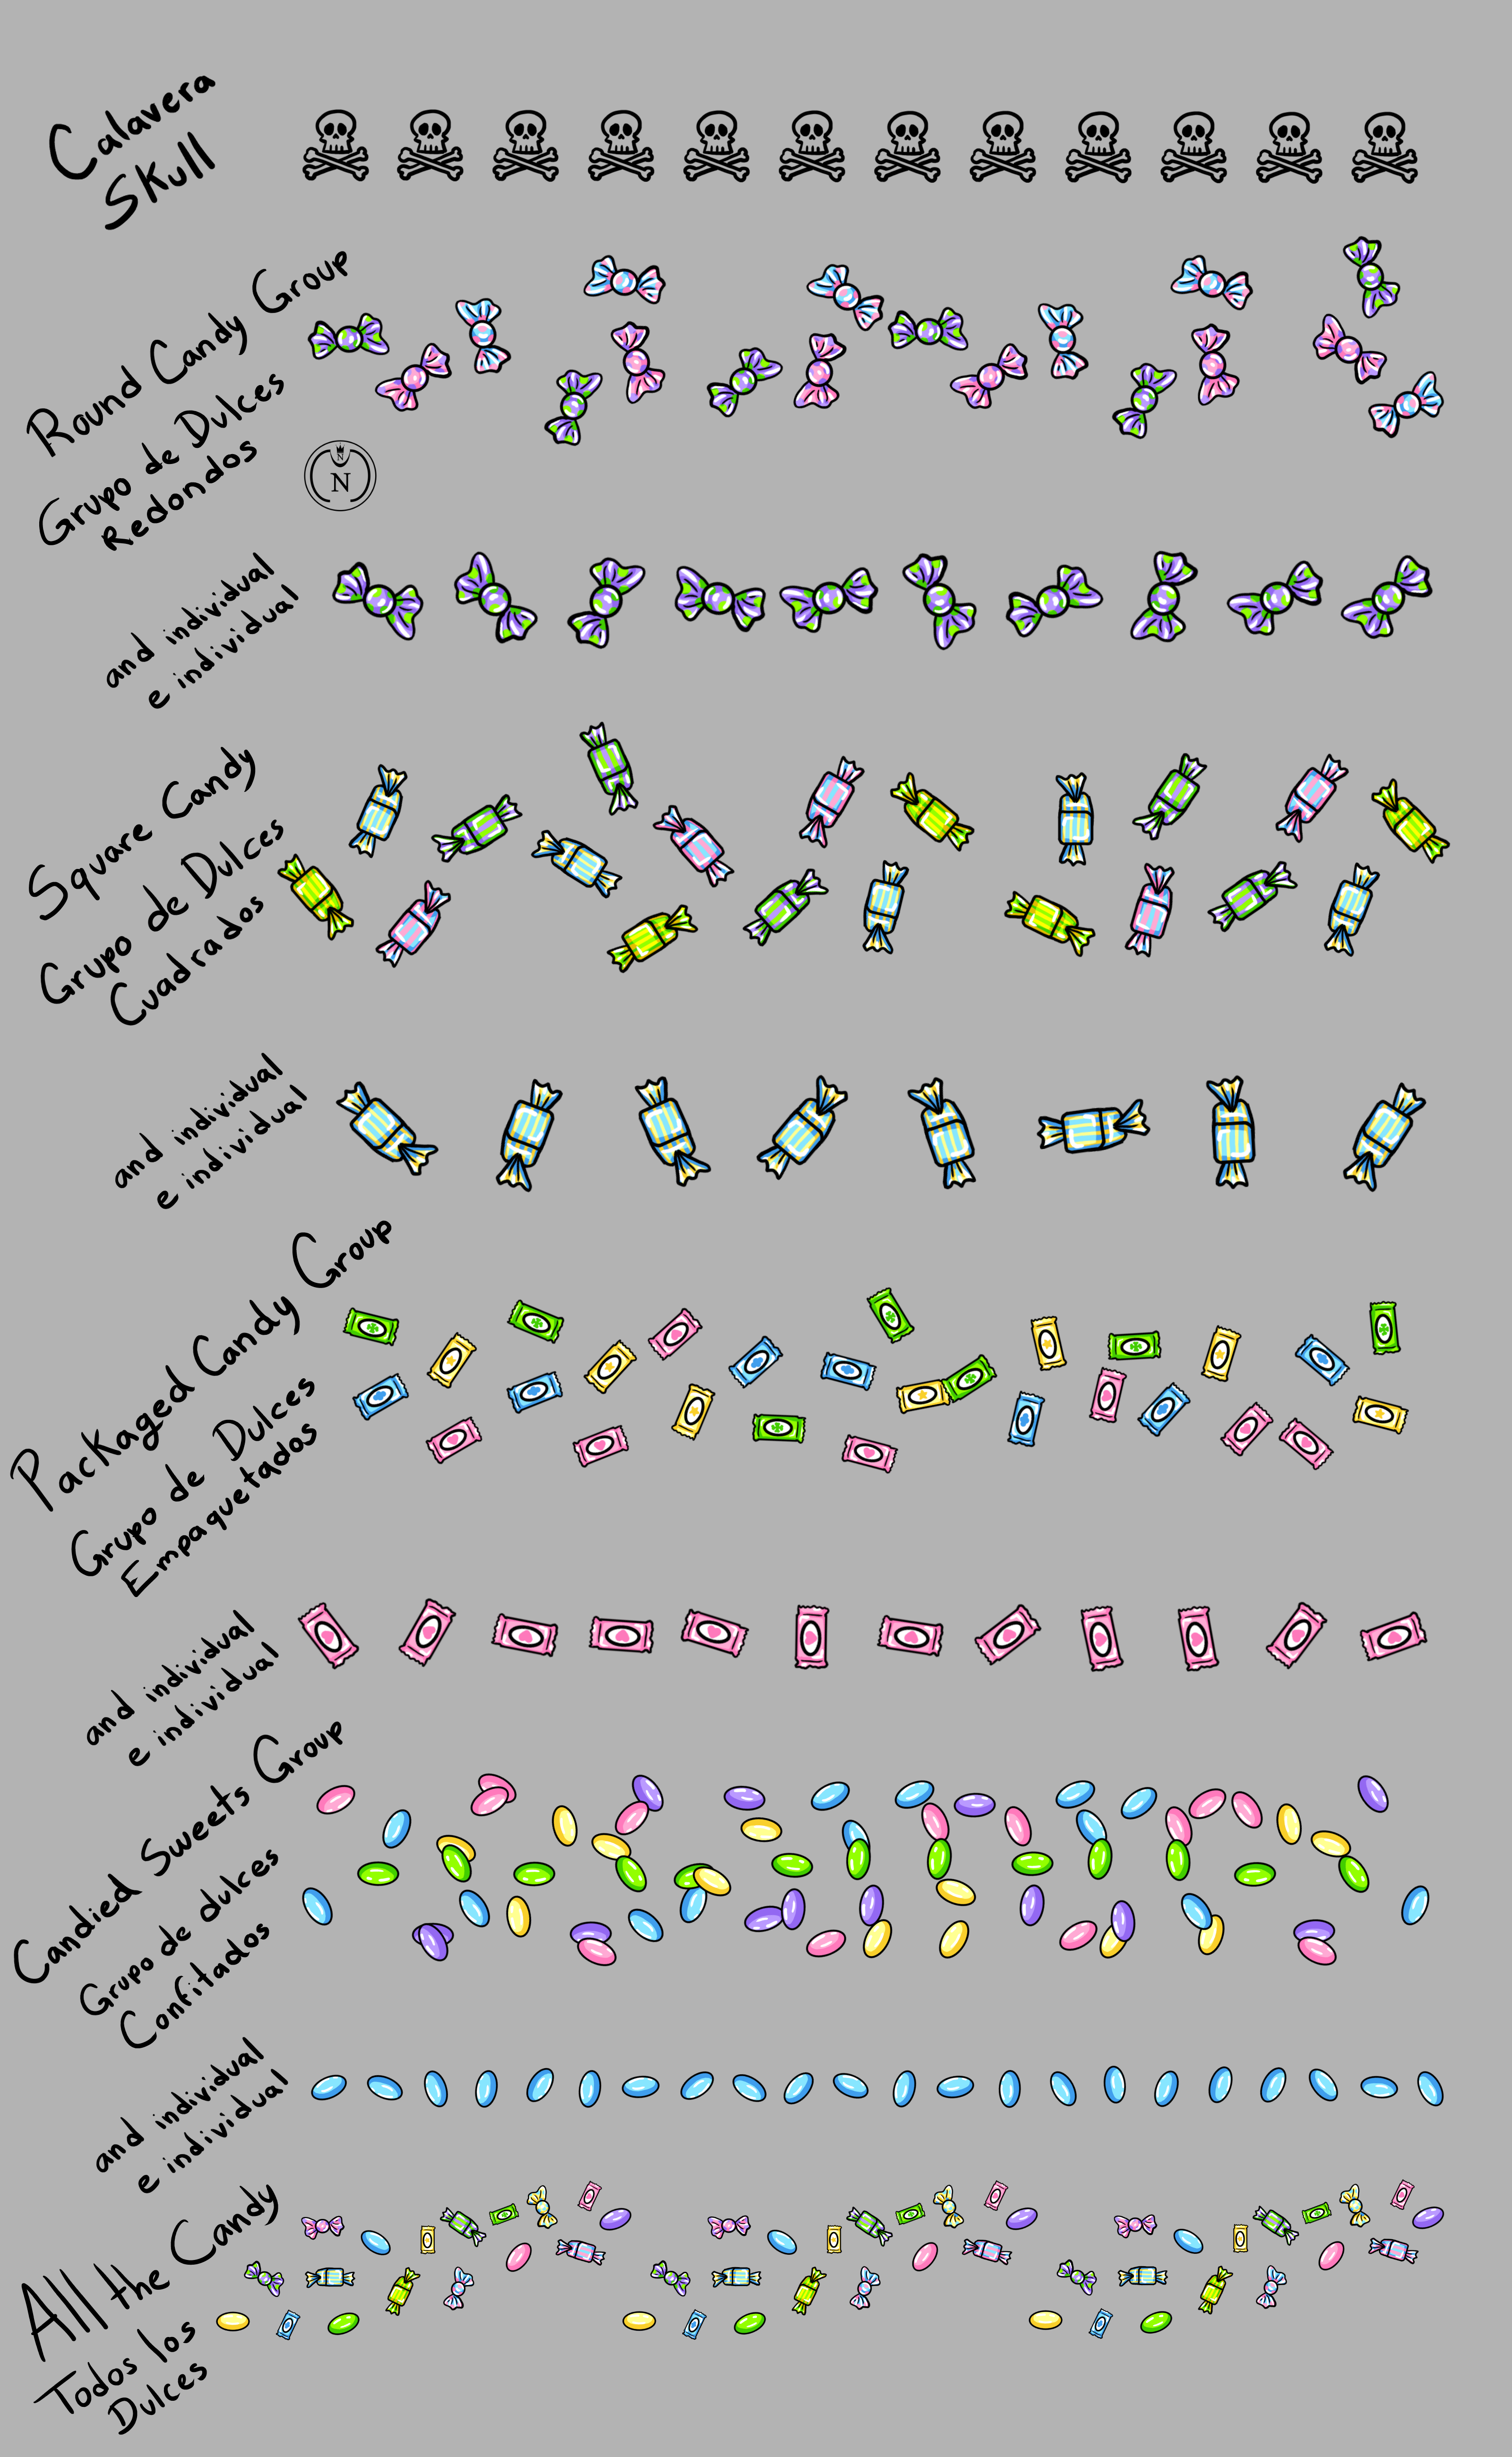 Calavera
Skull
Round Candy Group
Grupo de Dulces
Redondos
N
N
and individual
e individual
Square Candy
Grupo de Dulces
Cuadrados
and individual
e individual
Packaged Candy Group
Grupo de Dulces
Empaquetados
and individual
e individual
Candied Sweets Group
Grupo de dulces
Confitados
and individual
e individual
All the Candy
Todos los
Dulces